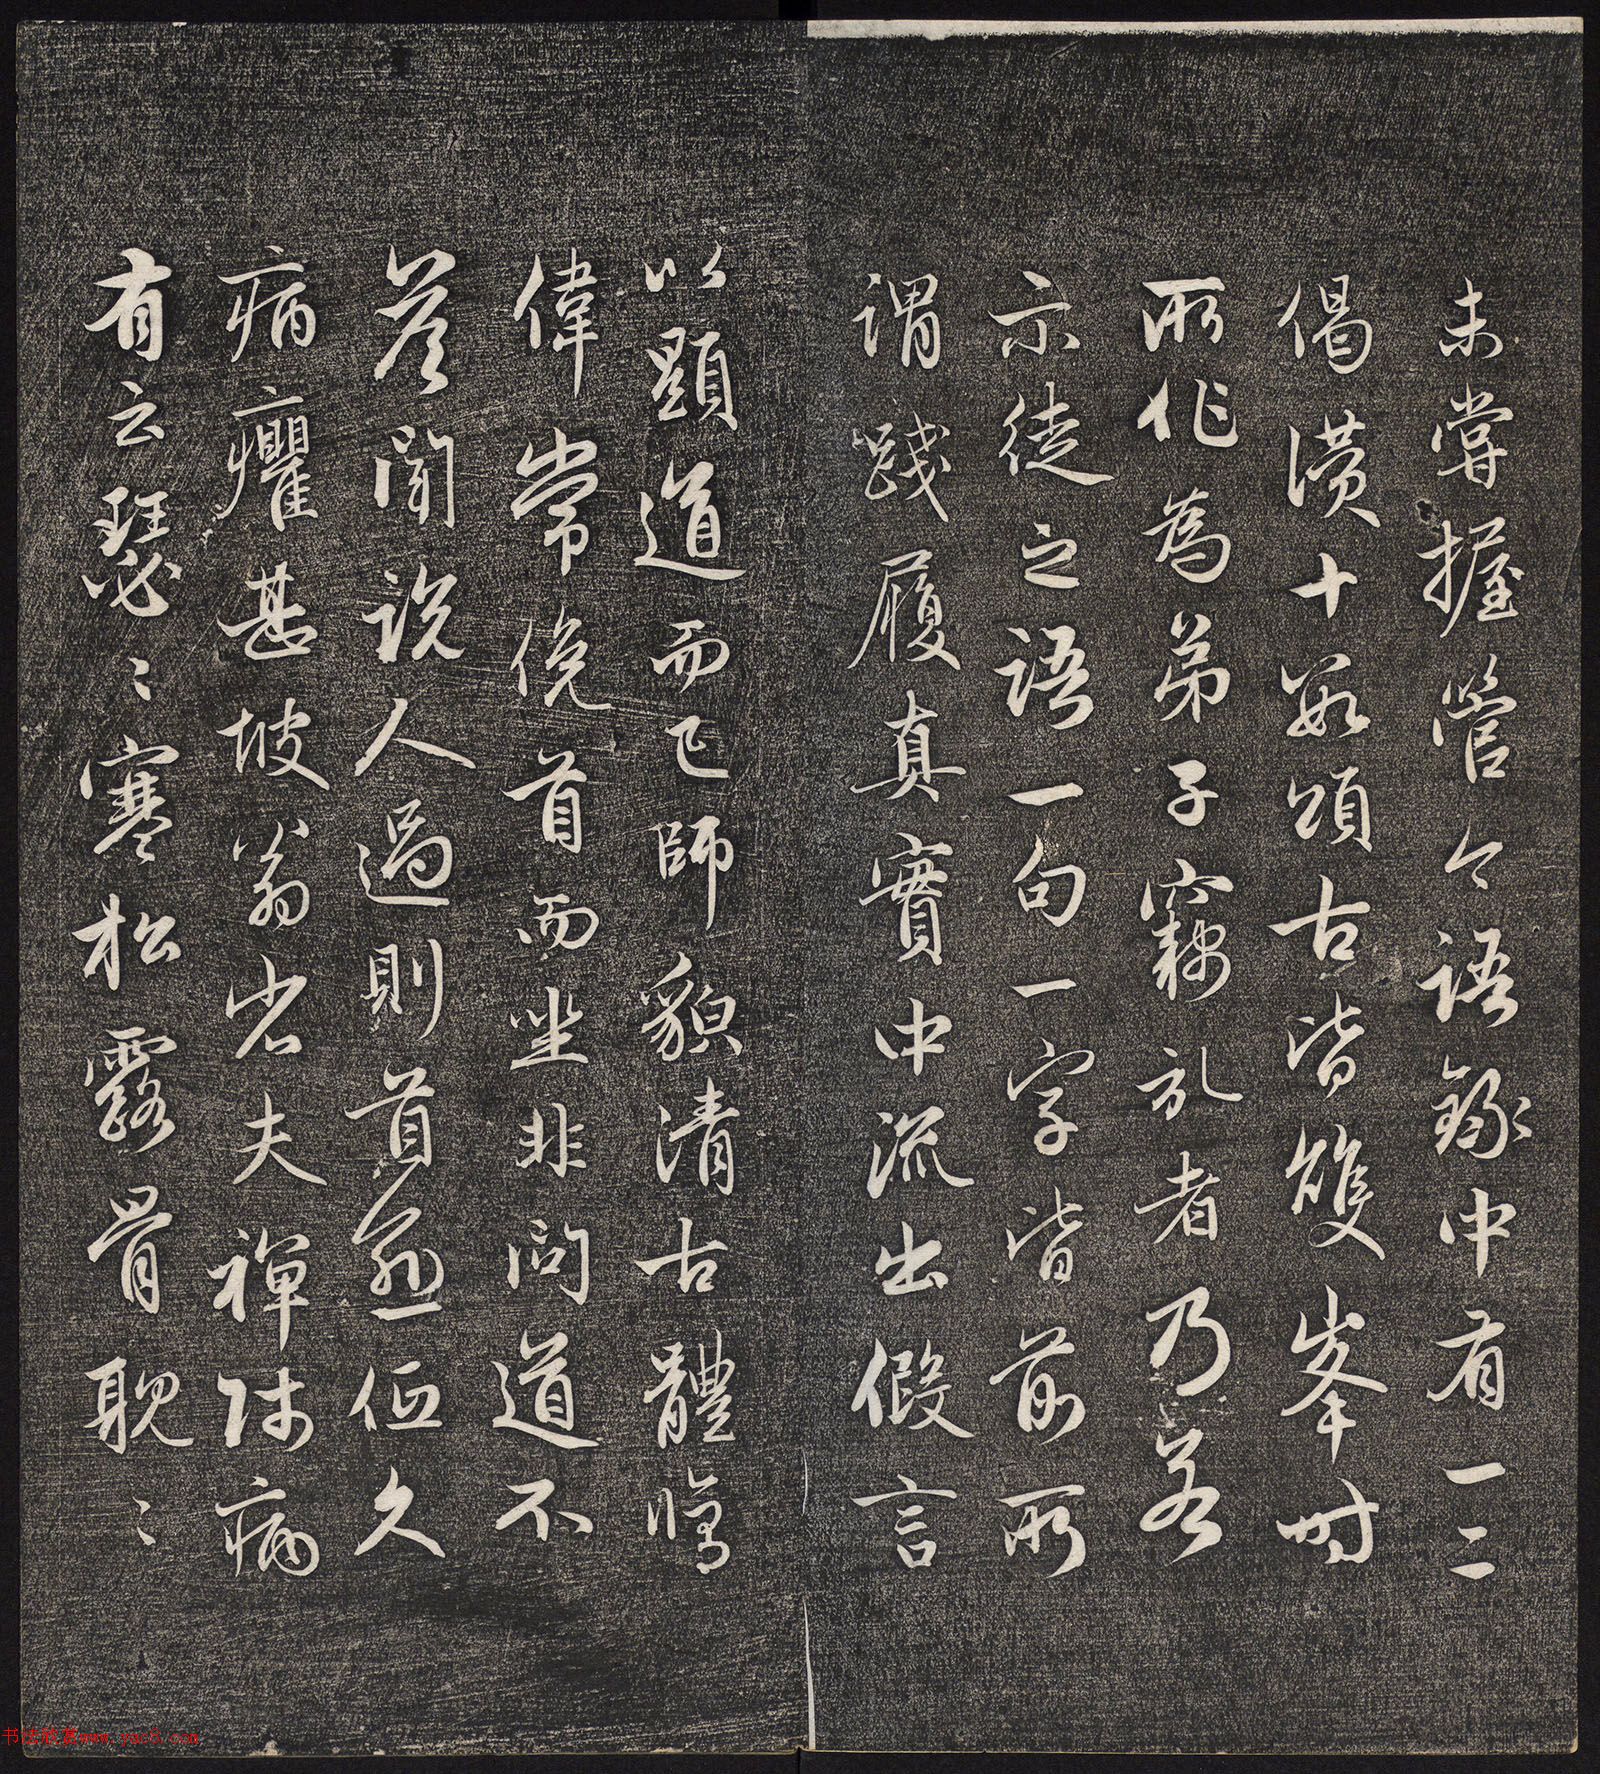 未嘗握管今語錄中有一二
偈讚十數頌古皆雙峯時
所作為弟子竊亂者乃若
示徒之語一句一字皆前所
謂踐履真實中流出假言
以顯道而已師貌清古體臞
偉常俛首而坐非問道不
答聞說人過則首愈低久
病癯甚坡翁夫禪師病
有云瑟々寒松露骨耽々
书法欣赏www.yac8.com